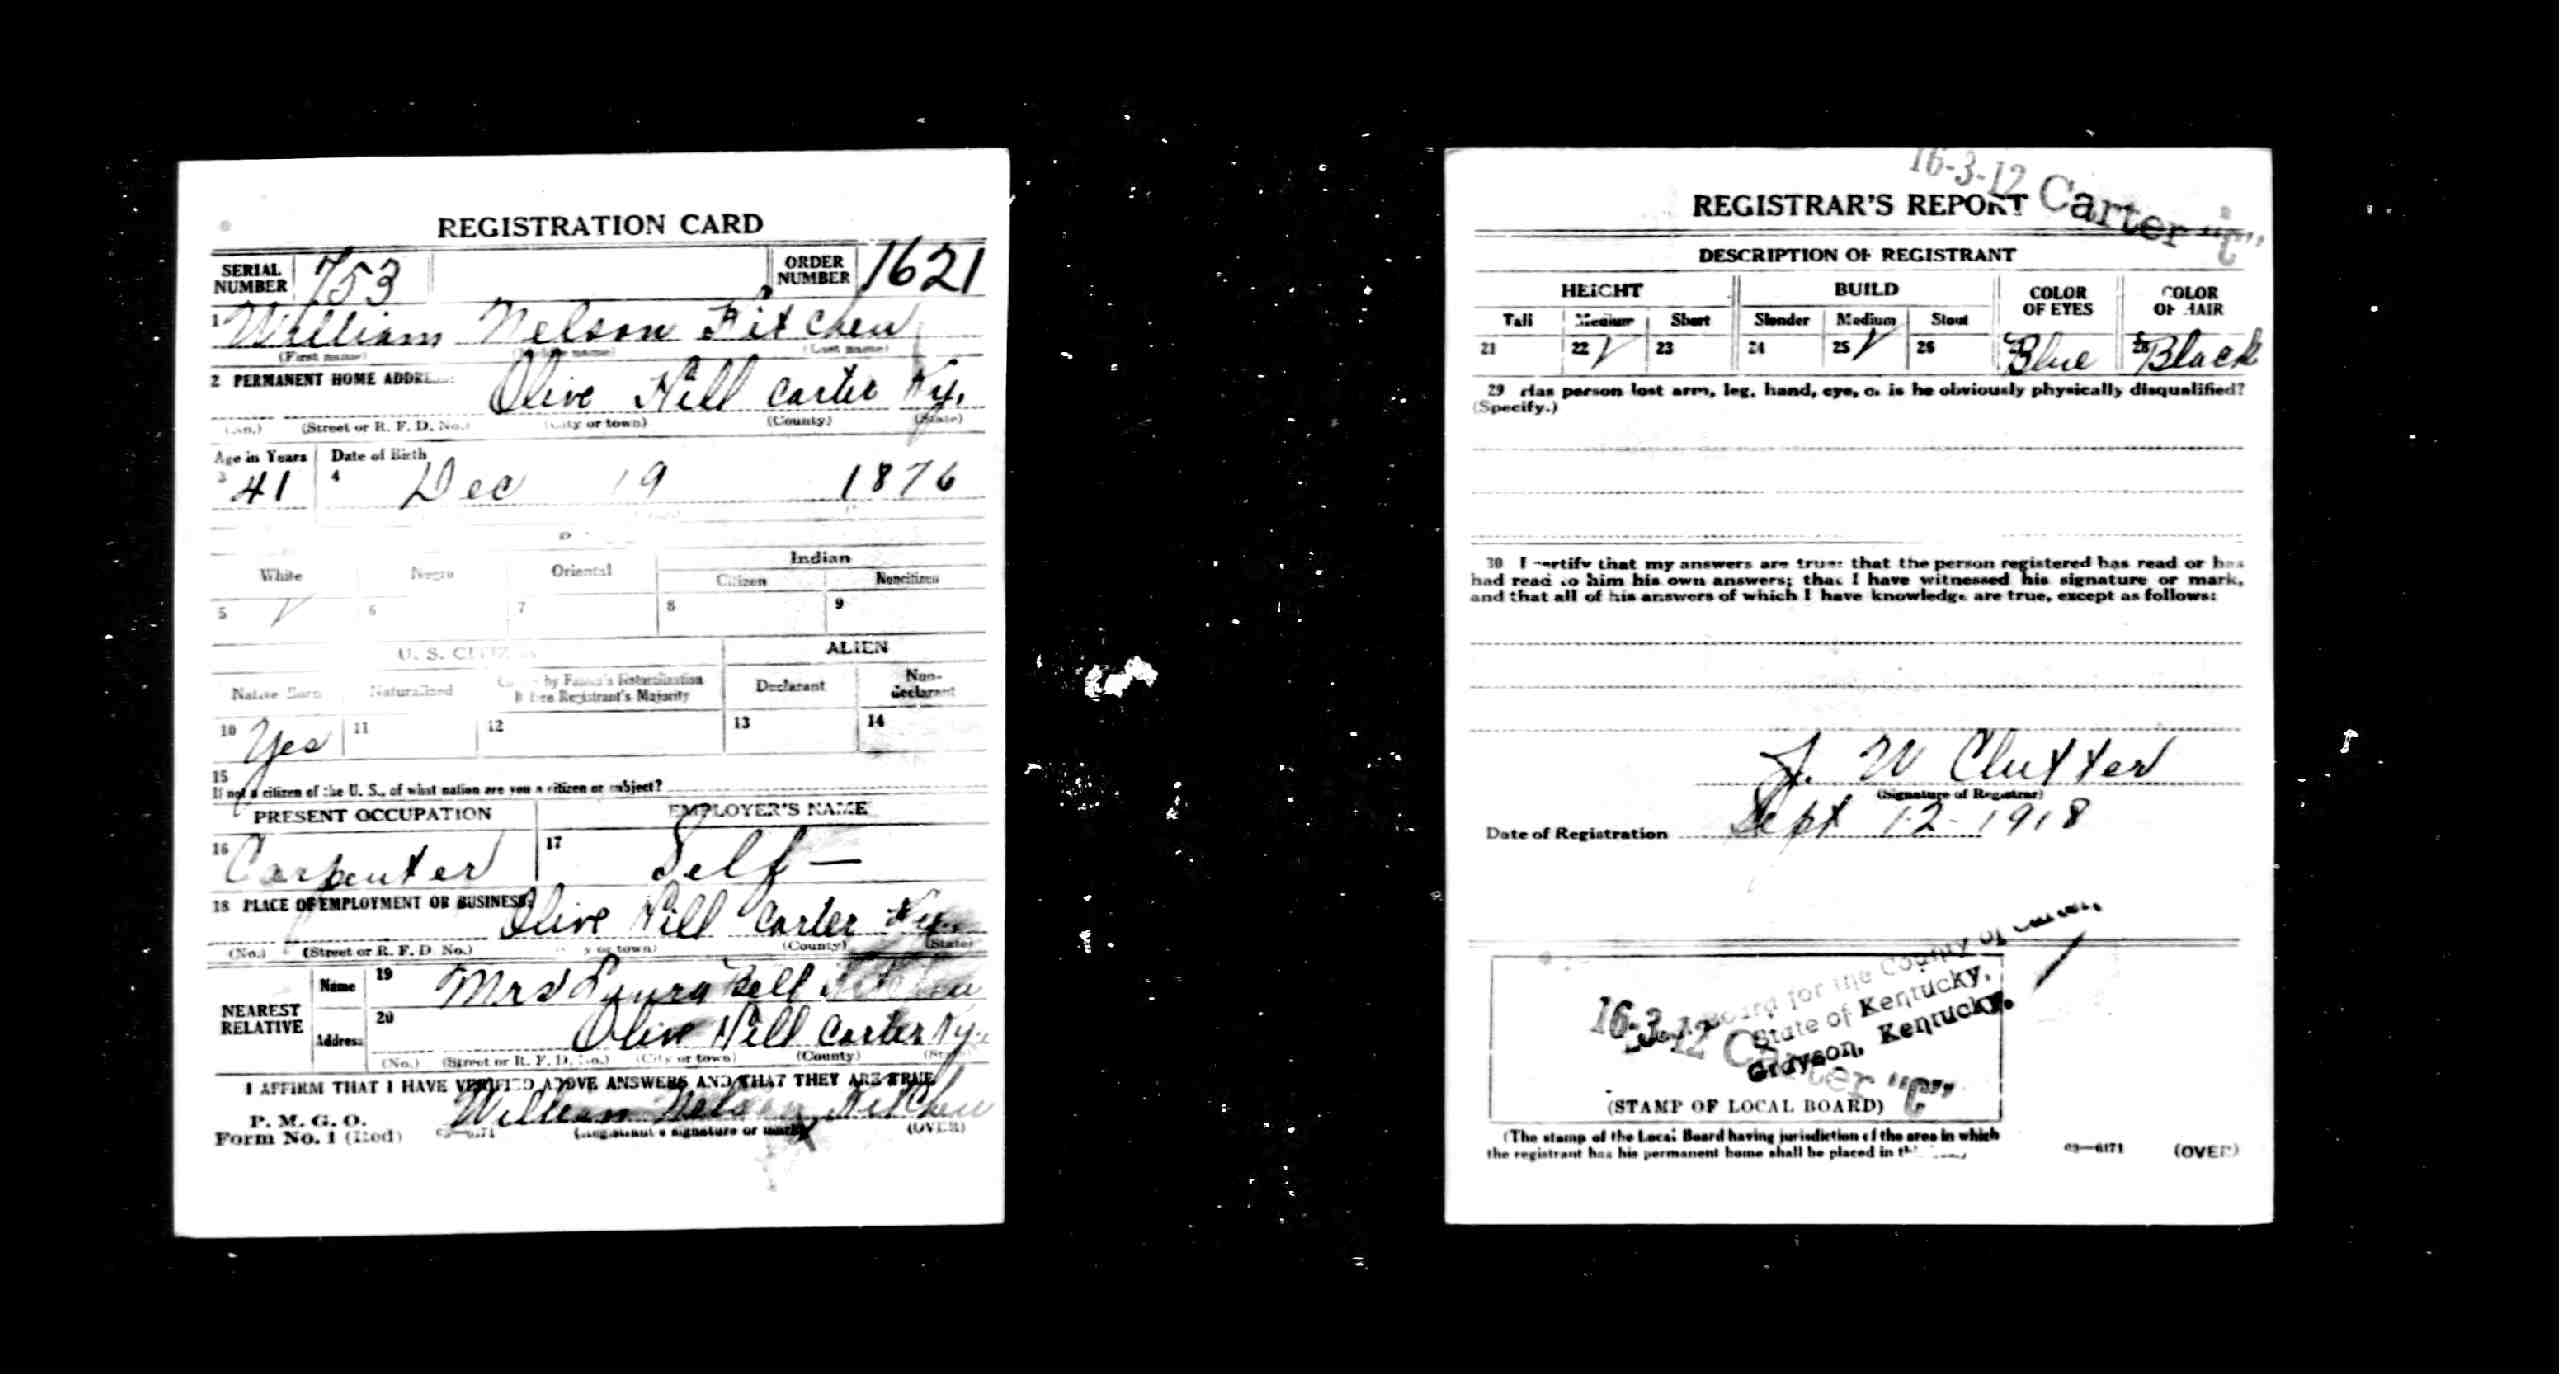 REGISTRATION CARD
SERIAL NUMBER 753 ORDER NUMBER 1621
1 William Nelson Kitchen
(First name) (Last name)
2 PERMANENT HOME ADDRE
Olive Hill Carter Ky.
(No.) (Street or R. F. D. No.) (City or town) (County) (State)
Age in Years Date of Birth
3 41 4 Dec 19 1876
White Negro Oriental Indian
Citizen Noncitizen
5 ✓ 6 7 8 9
U. S. CITIZ ALIEN
Native Born Naturalized by Father's Naturalization Before Registrant's Majority Declarant Non-declarant
10 Yes 11 12 13 14
15
If not a citizen of the U. S., of what nation are you a citizen or subject?
PRESENT OCCUPATION EMPLOYER'S NAME
16 Carpenter 17 Self —
18 PLACE OF EMPLOYMENT OR BUSINESS:
Olive Hill Carter Ky.
(No.) (Street or R. F. D. No.) (City or town) (County) (State)
NEAREST RELATIVE Name 19 Mrs Laura Bell Kitchen
Address 20 Olive Hill Carter Ky.
(No.) (Street or R. F. D. No.) (City or town) (County) (State)
I AFFIRM THAT I HAVE VERIFIED ABOVE ANSWERS AND THAT THEY ARE TRUE
P. M. G. O.
Form No. 1 (Red) William Nelson Kitchen
03—6171 (Registrant's signature or mark) (OVER)
16-3-12 Carter "C"
REGISTRAR'S REPORT
DESCRIPTION OF REGISTRANT
HEIGHT BUILD COLOR OF EYES COLOR OF HAIR
Tall Medium Short Slender Medium Stout
21 22 ✓ 23 24 25 ✓ 26 Blue 28 Black
29 Has person lost arm, leg, hand, eye, or is he obviously physically disqualified?
(Specify.)
30 I certify that my answers are true; that the person registered has read or has
had read to him his own answers; that I have witnessed his signature or mark,
and that all of his answers of which I have knowledge are true, except as follows:
J. W Clutter
(Signature of Registrar)
Date of Registration Sept 12 - 1918
Board for the County of Carter,
State of Kentucky,
Grayson, Kentucky.
16-3-12 Carter "C"
(STAMP OF LOCAL BOARD)
(The stamp of the Local Board having jurisdiction of the area in which
the registrant has his permanent home shall be placed in
03—6171 (OVER)